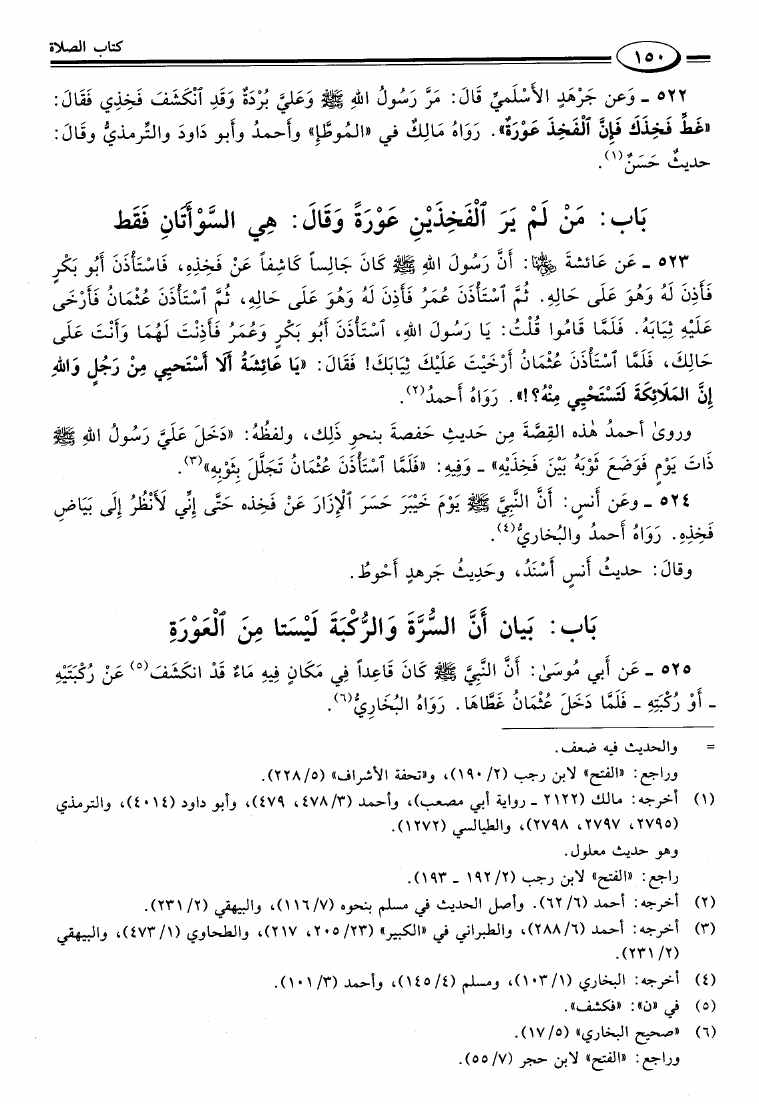 كتاب الصلاة
١٥٠
٥٢٢ ـ وَعن جَرْهَدٍ الأَسْلَميِّ قَالَ: مَرَّ رَسُولُ اللهِ ﷺ وَعَلَيَّ بُرْدَةٌ وَقَدِ ٱنْكَشَفَ فَخِذِي فَقَالَ:
«غَطِّ فَخِذَكَ فَإِنَّ ٱلْفَخِذَ عَوْرَةٌ». رَوَاهُ مَالِكٌ في «المُوطَّإِ» وأحمدُ وأبو دَاودَ والتِّرمذيُّ وقَالَ:
حديثٌ حَسَنٌ(١).
بَاب: مَنْ لَمْ يَرَ ٱلْفَخِذَيْنِ عَوْرَةً وَقَالَ: هِي السَّوْأَتَانِ فَقَط
٥٢٣ ـ عَن عَائشةَ رضي الله عنها: أَنَّ رَسُولَ اللهِ ﷺ كَانَ جَالِساً كَاشِفاً عَنْ فَخِذِهِ، فَاسْتَأْذَنَ أَبُو بَكْرٍ
فَأَذِنَ لَهُ وَهُوَ عَلَى حَالِهِ. ثُمَّ ٱسْتَأْذَنَ عُمَرُ فَأَذِنَ لَهُ وَهُوَ عَلَى حَالِهِ، ثُمَّ ٱسْتَأْذَنَ عُثْمَانُ فَأَرْخَى
عَلَيْهِ ثِيَابَهُ. فَلَمَّا قَامُوا قُلْتُ: يَا رَسُولَ اللهِ، ٱسْتَأْذَنَ أَبُو بَكْرٍ وَعُمَرُ فَأَذِنْتَ لَهُمَا وَأَنْتَ عَلَى
حَالِكَ، فَلَمَّا ٱسْتَأْذَنَ عُثْمَانُ أَرْخَيْتَ عَلَيْكَ ثِيَابَكَ! فَقَالَ: «يَا عَائِشَةُ أَلَا أَسْتَحيِي مِنْ رَجُلٍ وَاللهِ
إِنَّ المَلَائِكَةَ لَتَسْتَحْيِي مِنْهُ؟!». رَوَاهُ أَحمدُ(٢).
وروىٰ أحمدُ هٰذه القِصَّةَ مِن حَديثِ حَفصةَ بنحوِ ذَلِك، ولفظُهُ: «دَخَلَ عَلَيَّ رَسُولُ اللهِ ﷺ
ذَاتَ يَوْمٍ فَوَضَعَ ثَوْبَهُ بَيْنَ فَخِذَيْهِ» ـ وَفِيهِ: «فَلَمَّا ٱسْتَأْذَنَ عُثْمَانُ تَجَلَّلَ بِثَوْبِهِ»(٣).
٥٢٤ ـ وعَن أَنسٍ: أَنَّ النَّبِيَّ ﷺ يَوْمَ خَيْبَرَ حَسَرَ ٱلْإِزَارَ عَنْ فَخِذه حَتَّى إِنِّي لَأَنْظُرُ إِلَى بَيَاضِ
فَخِذِهِ. رَوَاهُ أَحمدُ والبُخاريُّ(٤).
وقَالَ: حديثُ أَنسٍ أَسْنَدُ، وحَدِيثُ جَرهدٍ أَحْوطُ.
بَاب: بَيان أَنَّ السُّرَّةَ وَالرُّكْبَةَ لَيْسَتا مِنَ ٱلْعَوْرَةِ
٥٢٥ ـ عَن أَبي مُوسَىٰ: أَنَّ النَّبِيَّ ﷺ كَانَ قَاعِداً فِي مَكَانٍ فِيهِ مَاءٌ قَدْ انكَشَفَ(٥) عَنْ رُكْبَتَيْهِ
ـ أَوْ رُكْبَتِهِ ـ فَلَمَّا دَخَلَ عُثْمَانُ غَطَّاهَا. رَوَاهُ البُخَارِيُّ(٦).
= والحديث فيه ضعف.
وراجع: «الفتح» لابن رجب (٢/ ١٩٠)، و«تحفة الأشراف» (٥/ ٢٢٨).
(١) أخرجه: مالك (٢١٢٢ ـ رواية أبي مصعب)، وأحمد (٣/ ٤٧٨، ٤٧٩)، وأبو داود (٤٠١٤)، والترمذي
(٢٧٩٥، ٢٧٩٧، ٢٧٩٨)، والطيالسي (١٢٧٢).
وهو حديث معلول.
راجع: «الفتح» لابن رجب (٢/ ١٩٢ ـ ١٩٣).
(٢) أخرجه: أحمد (٦/ ٦٢). وأصل الحديث في مسلم بنحوه (٧/ ١١٦)، والبيهقي (٢/ ٢٣١).
(٣) أخرجه: أحمد (٦/ ٢٨٨)، والطبراني في «الكبير» (٢٣/ ٢٠٥، ٢١٧)، والطحاوي (١/ ٤٧٣)، والبيهقي
(٢/ ٢٣١).
(٤) أخرجه: البخاري (١/ ١٠٣)، ومسلم (٤/ ١٤٥)، وأحمد (٣/ ١٠١).
(٥) في «ن»: «فكشف».
(٦) «صحيح البخاري» (٥/ ١٧).
وراجع: «الفتح» لابن حجر (٧/ ٥٥).